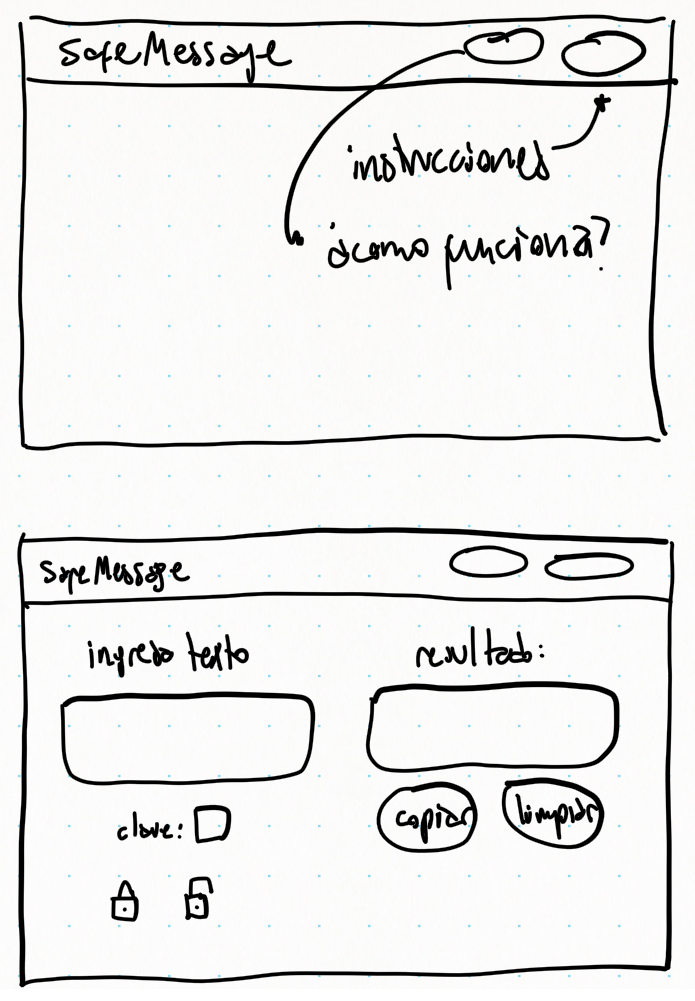 SafeMessage
instrucciones
¿como funciona?
SafeMessage
ingreso texto
resultado:
clave:
copiar
limpiar